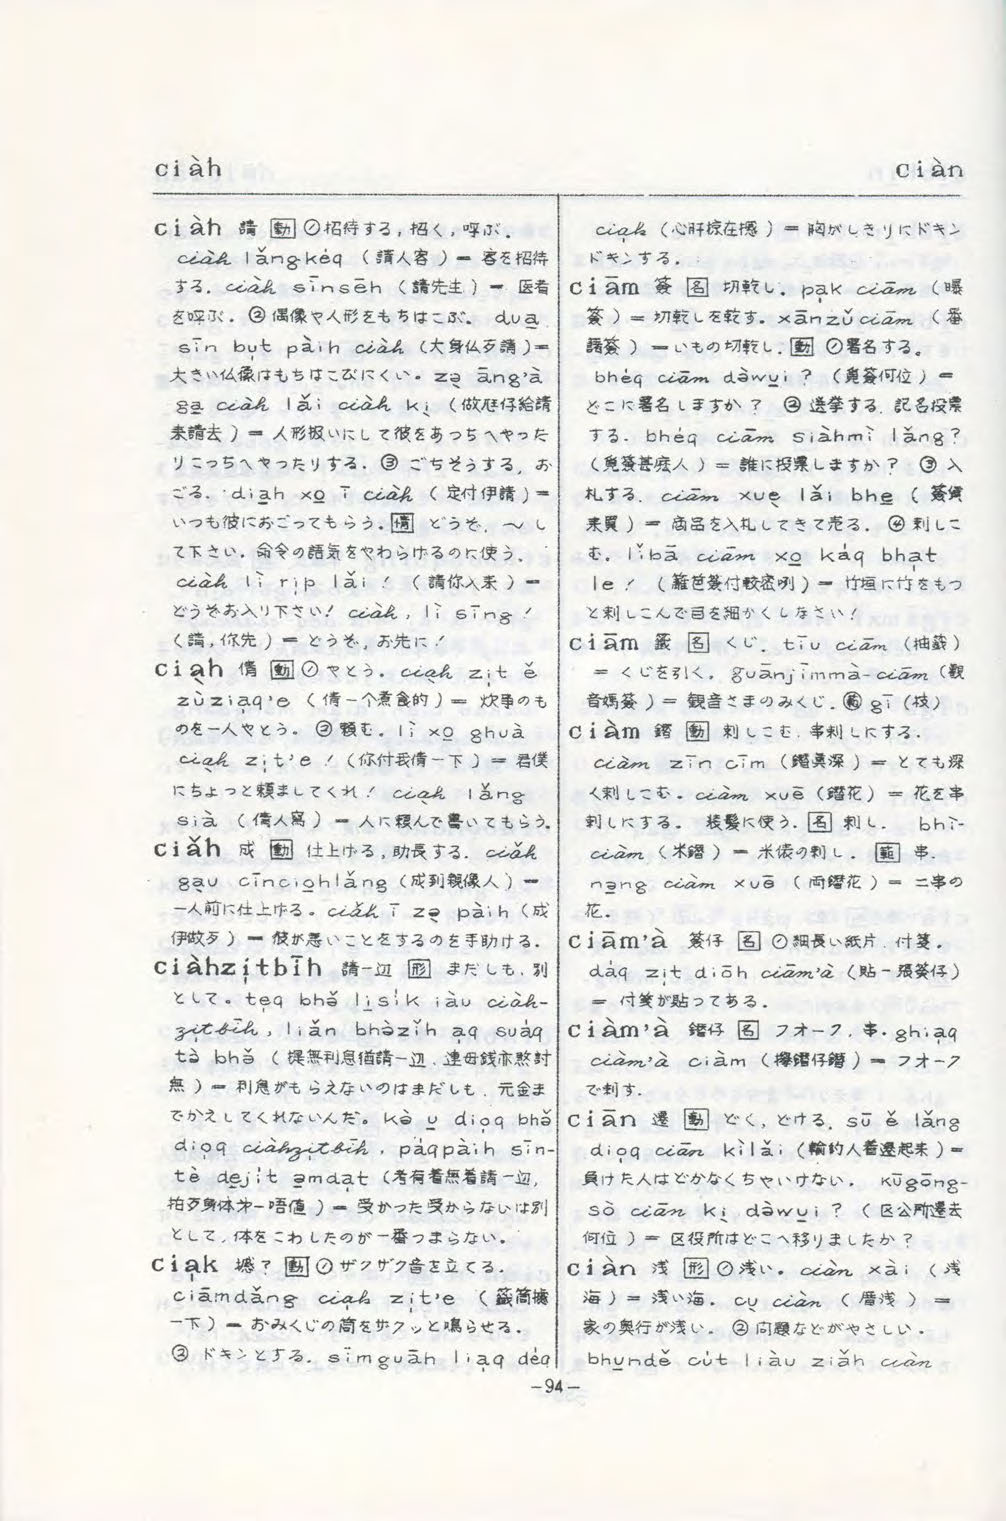 ciàh
ciàn
ciàh 請 動 ①招待する，招く，呼ぶ．
ciàh lǎngkéq （請人客）＝ 客を招待
する．ciàh sīnsēh （請先生）＝ 医者
を呼ぶ．②偶像や人形をもちはこぶ． dua̱
sīn bu̍t pàih ciàh （大身仏歹請）＝
大きい仏像はもちはこびにくい．zə̀ āng'à
ga̱ ciàh lǎi ciàh kị̀ （做尫仔給請
来請去）＝ 人形扱いにして彼をあっちへやった
りこっちへやったりする．③ごちそうする，お
ごる． dia̱h xo̱ ī ciàh （定付伊請）＝
いつも彼におごってもらう．情 どうぞ．〜し
て下さい．命令の語気をやわらげるのに使う．
ciàh lì ri̍p lǎi！ （請你入来）＝
どうぞお入り下さい！ ciàh，lì sīng！
（請，你先）＝ どうぞ，お先に！
ciạ̀h 倩 動 ①やとう．ciạ̀h zi̍t ě
zùziàq'e （倩一个煮食的）＝ 炊事のも
のを一人やとう．②頼む．lì xo̱ ghuà
ciạ̀h zi̍t'e！（你付我倩一下）＝ 君僕
にちょっと頼ましてくれ！ ciạ̀h lǎng
sià （倩人寫）＝ 人に頼んで書いてもらう．
ciǎh 成 動 仕上げる，助長する． ciǎh
gạ̀u cīnciọ̀hlǎng （成到親像人）＝
一人前に仕上げる．ciǎh ī zə̀ pàih （成
伊做歹）＝ 彼が悪いことをするのを手助ける．
ciàhzi̍tbīh 請一辺 形 まだしも，別
として．te̍q bhǒ li̱sı́k iàu ciàh-
zi̍tbīh，liǎn bhòzǐh a̱q suáq
tò bhǒ （提無利息猶請一辺，連母銭亦煞討
無）＝ 利息がもらえないのはまだしも，元金ま
でかえしてくれないんだ． Kò u̱ dio̍q bhǒ
dio̍q ciàhzi̍tbīh，páqpàih sīn-
tè de̱jı́t ə̱mda̍t （考有着無着請一辺，
拍歹身体才一唔値）＝ 受かった受からないは別
として，体をこわしたのが一番つまらない．
cia̍k 撼？ 動 ①ザクザク音を立てる．
ciāmdǎng cia̍k zi̍t'e （籤筒撼
一下）＝ おみくじの筒をザクッと鳴らせる．
②ドキンとする．simguāh lia̍q déq
cia̍k （心肝掠在撼）＝ 胸がしきりにドキン
ドキンする．
ciām 簽 名 切乾し．pa̍k ciām （曝
簽）＝ 切乾しを乾す．xānzǔciām （番
藷簽）＝ いもの切乾し．動 ①署名する．
bhéq ciām dǒwu̱i？ （覓簽何位）＝
どこに署名しますか？ ②選挙する．記名投票
する．bhéq ciām siàhmì lǎng？
（覓簽甚麽人）＝ 誰に投票しますか？ ③入
札する．ciām xuẹ̀ lǎi bhe̱ （簽貨
来買）＝ 商品を入札してきて売る．④刺しこ
む．lǐbā ciām xo̱ káq bha̍t
le！（籬笆簽付較密咧）＝ 竹垣に竹をもっ
と刺しこんで目を細かくしなさい！
ciām 籤 名 くじ．tīu ciām （抽籤）
＝ くじを引く．guānjīmmà-ciām （観
音媽簽）＝ 観音さまのみくじ．範 gī（枝）
ciàm 鑹 動 刺しこむ，串刺しにする．
ciàm zīn cīm （鑹眞深）＝ とても深
く刺しこむ．ciàm xuē （鑹花）＝ 花を串
刺しにする． 装髪に使う．名 刺し． bhì-
ciàm （米鑹）＝ 米俵の刺し． 範 串．
nṉg ciàm xuē （両鑹花）＝ 二串の
花．
ciām'à 簽仔 名 ①細長い紙片．付箋．
dáq zi̍t diōh ciām'à （貼一張簽仔）
＝ 付箋が貼ってある．
ciàm'à 鑹仔 名 フオーク，串．ghia̍q
ciàm'à ciàm （攑鑹仔鑹）＝ フオーク
で刺す．
ciān 遷 動 どく，どける．sū ě lǎng
dio̍q ciān kìlǎi （輸的人着遷起来）＝
負けた人はどかなくちゃいけない． Kūgōng-
sò ciān kị̀ dǒwu̱i？ （区公所遷去
何位）＝ 区役所はどこへ移りましたか？
ciàn 浅 形 ①浅い．ciàn xài （浅
海）＝ 浅い海．cụ̀ ciàn （厝浅） ＝
家の奥行が浅い． ②問題などがやさしい．
bhu̱ndě cút liàu ziǎh ciàn
－94－